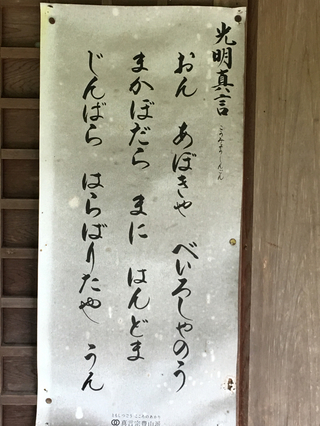 光明真言
こうみょうしんごん
おん　あぼきゃ　べいろしゃのう
まかぼだら　まに　はんどま
じんばら　はらばりたや　うん
真言宗豊山派